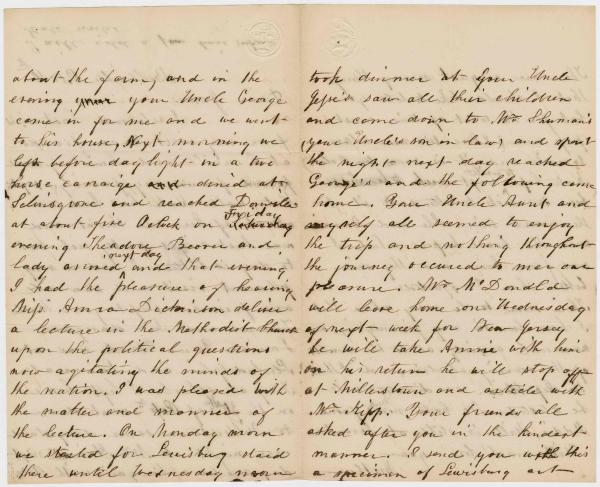 about the farm, and in the
evening your your Uncle George
came in for me and we went
to his house, Next morning we
left before day light in a two
horse carraige and dined at
Selinsgrove and reached Danville
at about five Oclock on Saturday Friday
evening Theadore Beaver and
lady arived next day and that evening
I had the pleasure of hearing
Miss Anna Dickinson deliver
a lecture in the Methodist Church
upon the political questions
now agitating the minds of
the nation. I was pleased with
the matter and manner of
the lecture. On Monday morn
we started for Lewisburg staid
there until Wednesday morn
took dinner at Your Uncle
Jesse's saw all their children
and come down to Mr Shuman's
(your Uncle's son in law) and spent
the night next day reached
George's and the following come
home. Your Uncle Aunt and
myself all seemed to enjoy
the trip and nothing throughout
the journey occured to mar our
pleasure. Mr McDonald
will leave home on Wednesday
of next week for New Jersey
he will take Annie with him
on his return he will stop off
at Millerstown and with
Mr Kipp. Your friends all
asked after you in the kindest
manner. I send you with this
a specimen of Lewisburg art